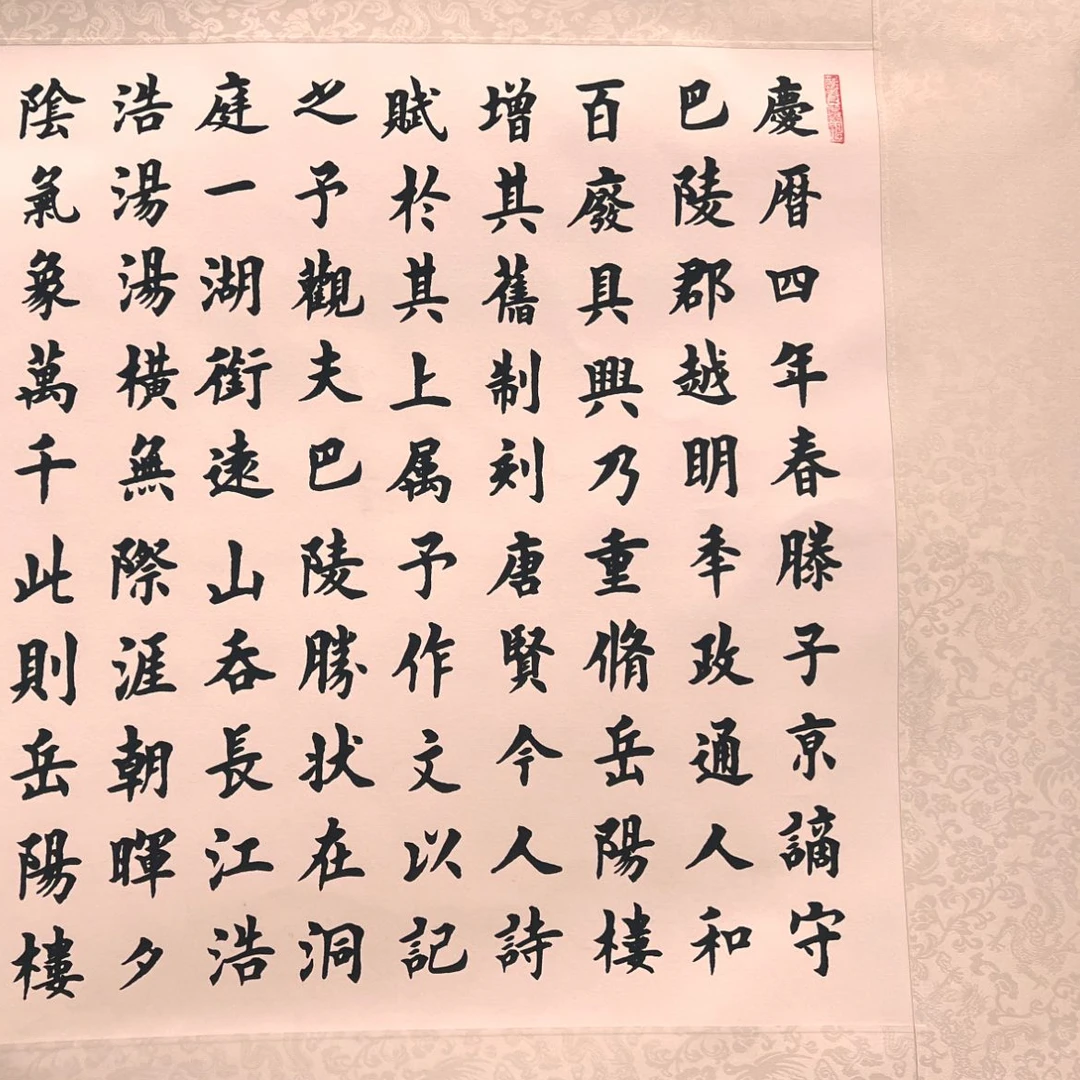 慶曆四年春滕子京謫守
巴陵郡越明年政通人和
百廢具興乃重脩岳陽樓
增其舊制刻唐賢今人詩
賦於其上属予作文以記
之予觀夫巴陵勝狀在洞
庭一湖銜遠山吞長江浩
浩湯湯橫無際涯朝暉夕
陰氣象萬千此則岳陽樓